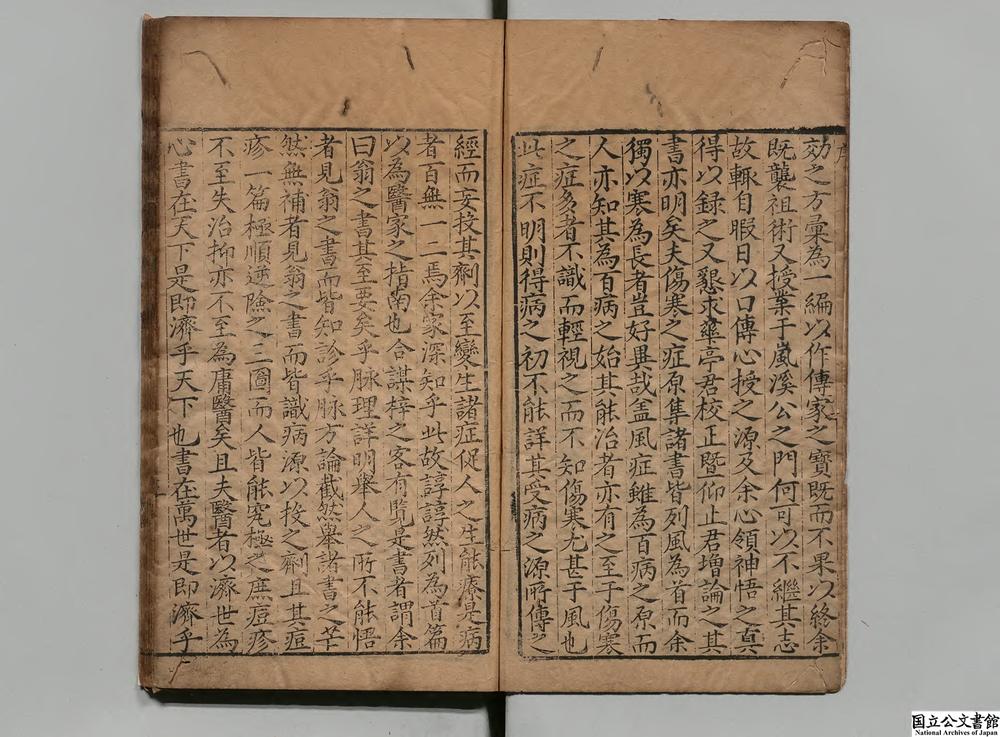 效之方彙為一編以作傳家之寶既而不果以終余
既襲祖術又授業于嵐溪公之門何可以不繼其志
故輒自暇日以口傳心授之源及余心領神悟之真
得以録之又懇求蘂亭君校正暨仰止君增論之其
書亦明矣夫傷寒之症原集諸書皆列風為首而余
獨以寒為長者豈好異哉盖風症雖為百病之原而
人亦知其為百病之始其能治者亦有之至于傷寒
之症多者不識而輕視之而不知傷寒尤甚于風也
此症不明則得病之初不能詳其受病之源所傳之
經而妄投其劑以至變生諸症促人之生能療是病
者百無一二焉余家深知乎此故諄諄然列為首篇
以為醫家之指南也合謀梓之客有覧是書者謂余
曰翁之書其至要矣乎脉理詳明舉人之所不能悟
者見翁之書而皆知診乎脉方論截然舉諸書之茫
然無補者見翁之書而皆識病源以投之劑且其痘
疹一篇極順逆險之三圖而人皆能究極之庶痘疹
不至失治抑亦不至為庸醫矣且夫醫者以濟世為
心書在天下是即濟乎天下也書在萬世是即濟乎
国立公文書館
National Archives of Japan